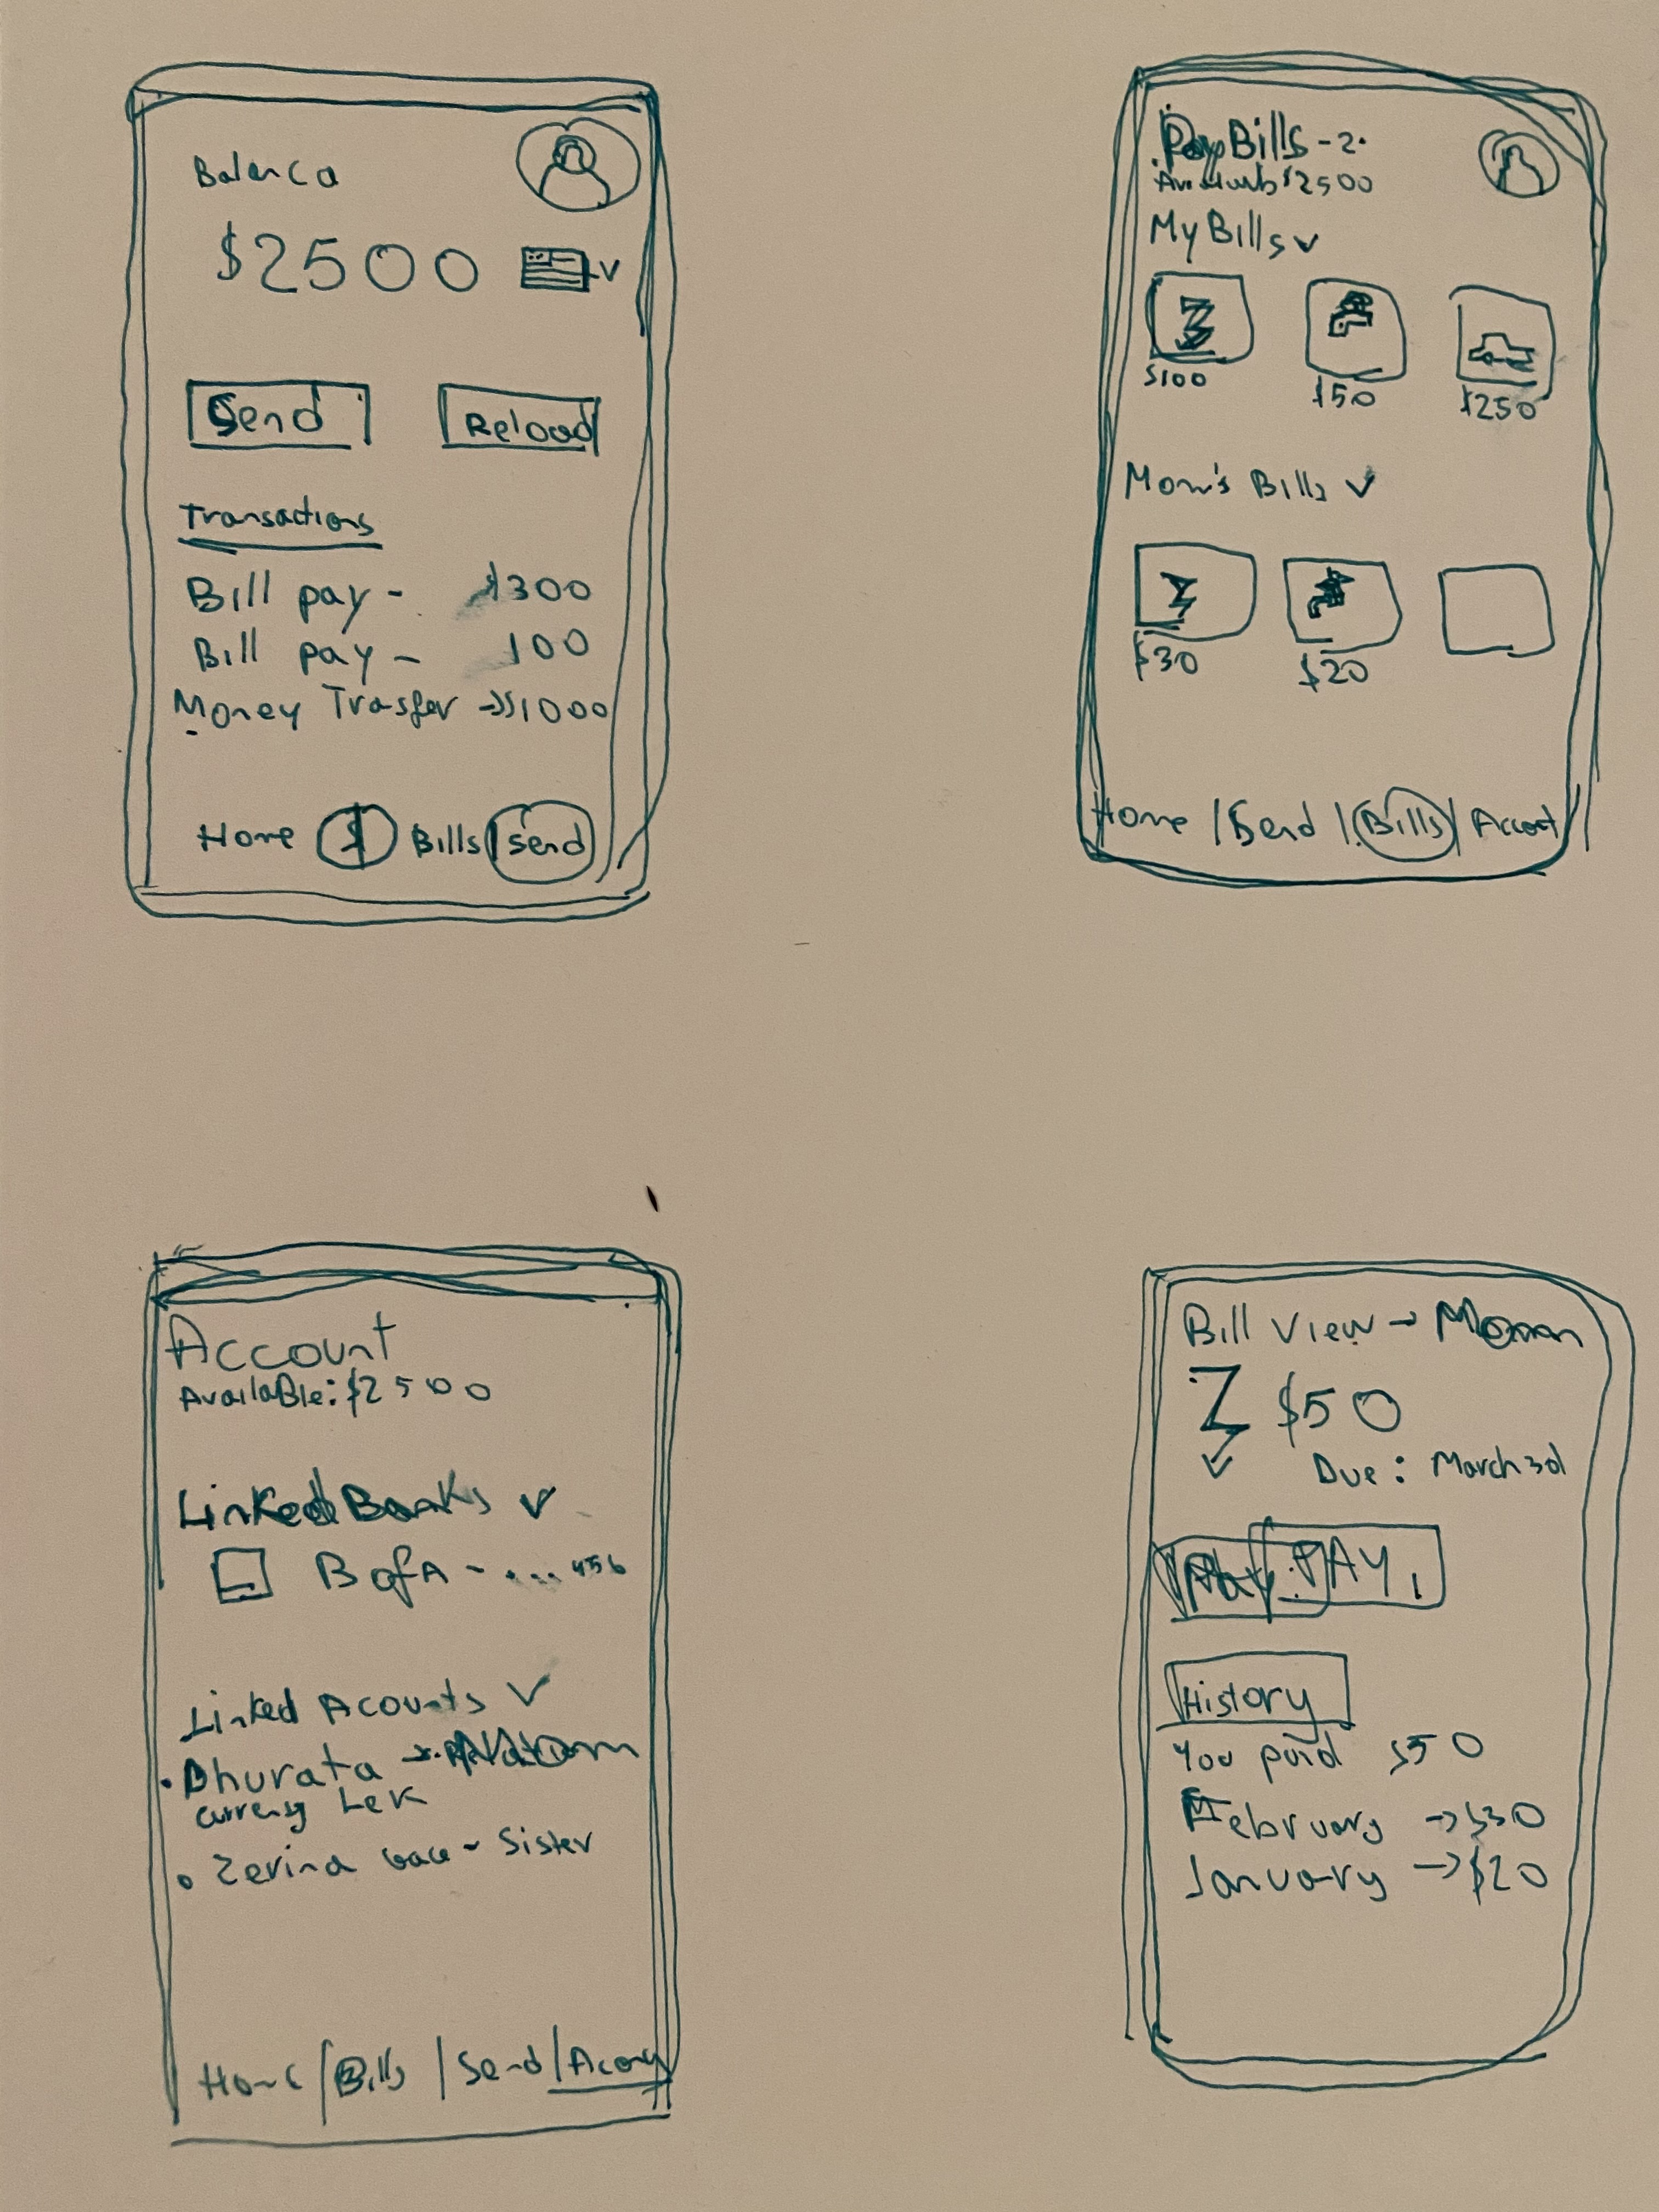 Balanca
$2500
Send
Reload
Transactions
Bill pay - $300
Bill pay - 100
Money Trasfer → $1000
Home $ Bills | Send
Pay Bills - 2.
$2500
My Bills
$100
$50
$250
Mom's Bills
$30
$20
Home | Send | Bills | Accont
Account
Available: $2500
Linked Banks
B of A - .... 456
Linked Acounts
• Dhurata →
currensy Lek
• Zerina - Sister
Home | Bills | Send | Acony
Bill View →
$50
Due: March 3d
PAY
History
You paid $50
February → $30
January → $20